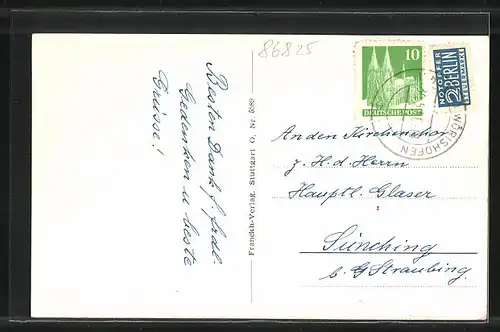 86825
Besten Dank f. frdl.
Gedenken u beste
Grüsse!
Franckh-Verlag, Stuttgart O, Nr. 589
10
DEUTSCHE POST
NOTOPFER
2 BERLIN
STEUERMARKE
WÖRISHOFEN
An den Kirchenchor
z. H. d. Herrn
Hauptl. Glaser
Sünching
b. Straubing.